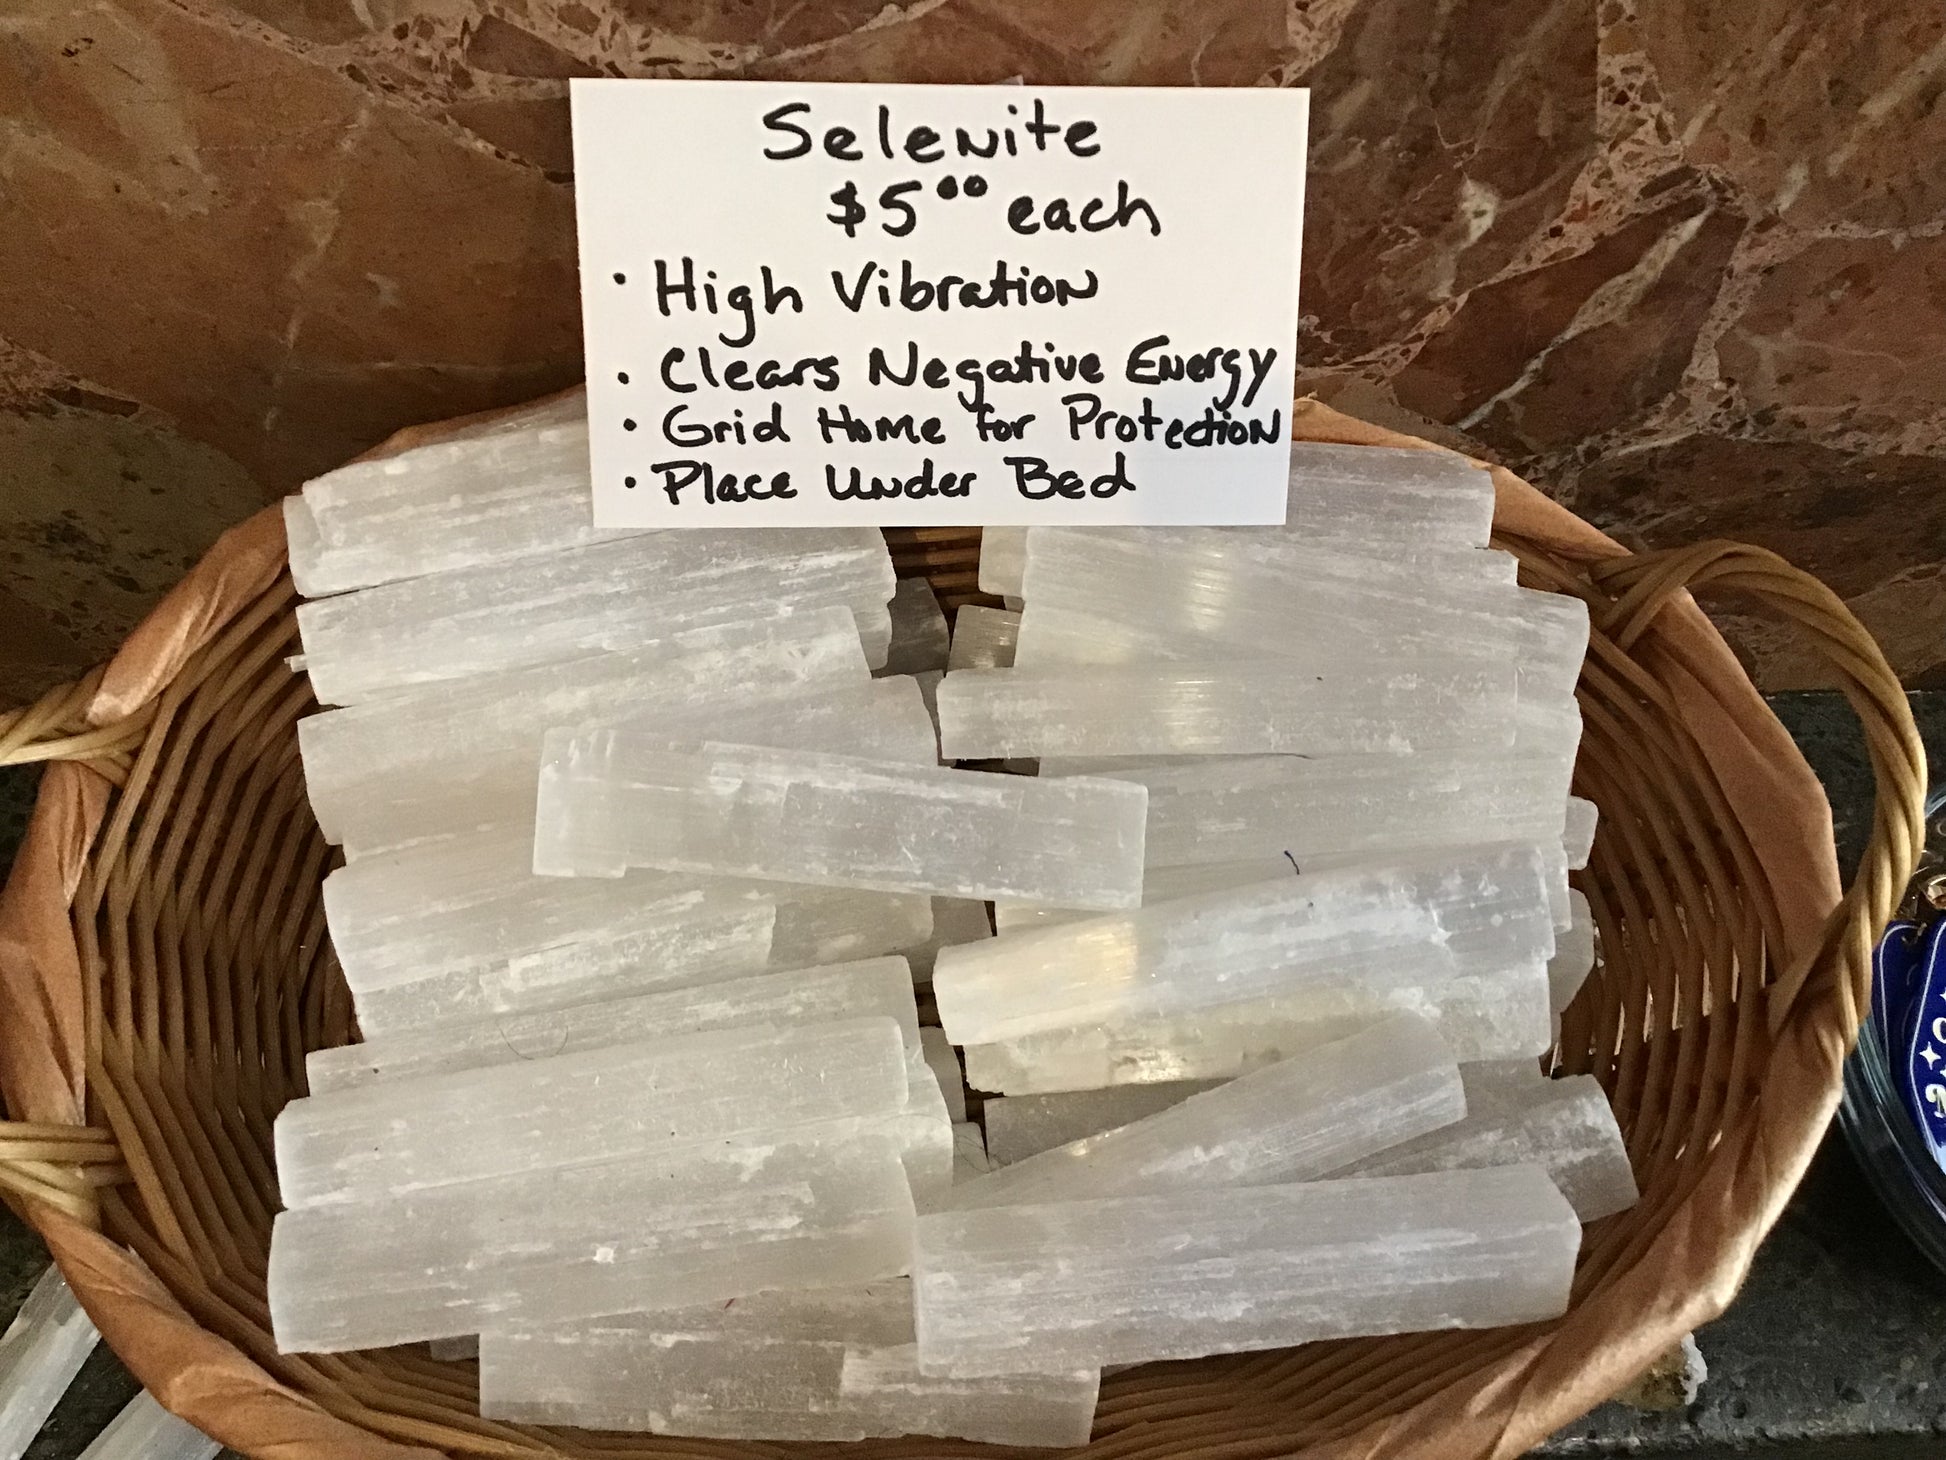 Selenite
$5⁰⁰ each
· High Vibration
· Clears Negative Energy
· Grid Home for Protection
· Place Under Bed